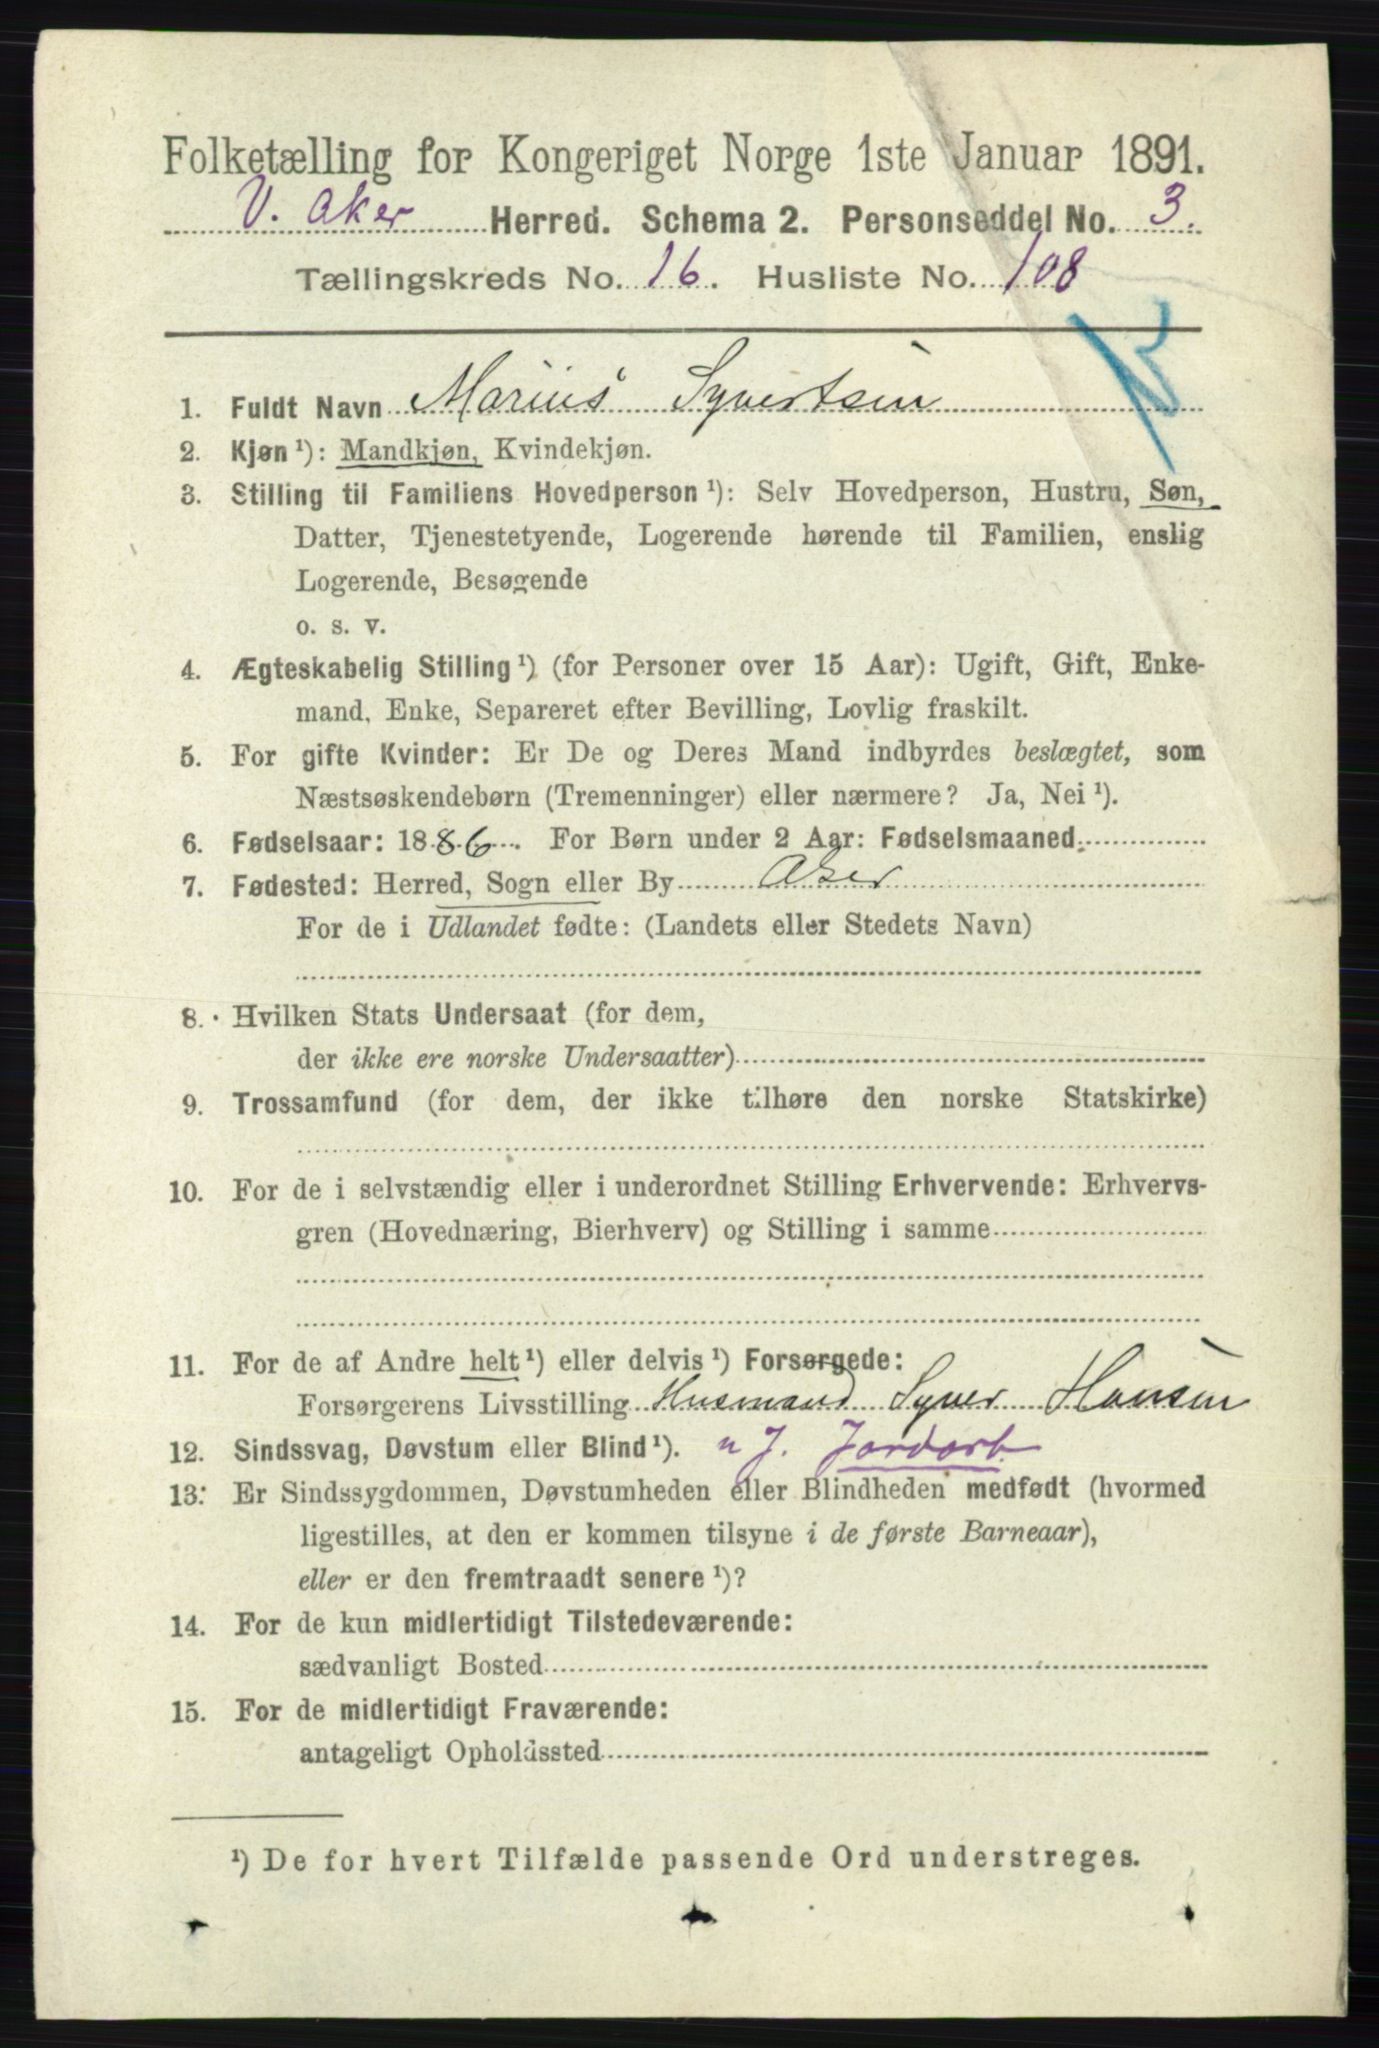 Folketælling for Kongeriget Norge 1ste Januar 1891.
V. Aker Herred. Schema 2. Personseddel No. 3.
Tællingskreds No. 16. Husliste No. 108
1. Fuldt Navn Marius Syvertsen
2. Kjøn ¹): Mandkjøn, Kvindekjøn.
3. Stilling til Familiens Hovedperson ¹): Selv Hovedperson, Hustru, Søn,
Datter, Tjenestetyende, Logerende hørende til Familien, enslig
Logerende, Besøgende
o. s. v.
4. Ægteskabelig Stilling ¹) (for Personer over 15 Aar): Ugift, Gift, Enke-
mand, Enke, Separeret efter Bevilling, Lovlig fraskilt.
5. For gifte Kvinder: Er De og Deres Mand indbyrdes beslægtet, som
Næstsøskendebørn (Tremenninger) eller nærmere? Ja, Nei ¹).
6. Fødselsaar: 1886. For Børn under 2 Aar: Fødselsmaaned
7. Fødested: Herred, Sogn eller By Aker
For de i Udlandet fødte: (Landets eller Stedets Navn)
8. Hvilken Stats Undersaat (for dem,
der ikke ere norske Undersaatter)
9. Trossamfund (for dem, der ikke tilhøre den norske Statskirke)
10. For de i selvstændig eller i underordnet Stilling Erhvervende: Erhvervs-
gren (Hovednæring, Bierhverv) og Stilling i samme
11. For de af Andre helt ¹) eller delvis ¹) Forsørgede:
Forsørgerens Livsstilling Husmand Syver Hansen
12. Sindssvag, Døvstum eller Blind ¹). u J. Jordarb.
13. Er Sindssygdommen, Døvstumheden eller Blindheden medfødt (hvormed
ligestilles, at den er kommen tilsyne i de første Barneaar),
eller er den fremtraadt senere ¹)?
14. For de kun midlertidigt Tilstedeværende:
sædvanligt Bosted
15. For de midlertidigt Fraværende:
antageligt Opholdssted
¹) De for hvert Tilfælde passende Ord understreges.